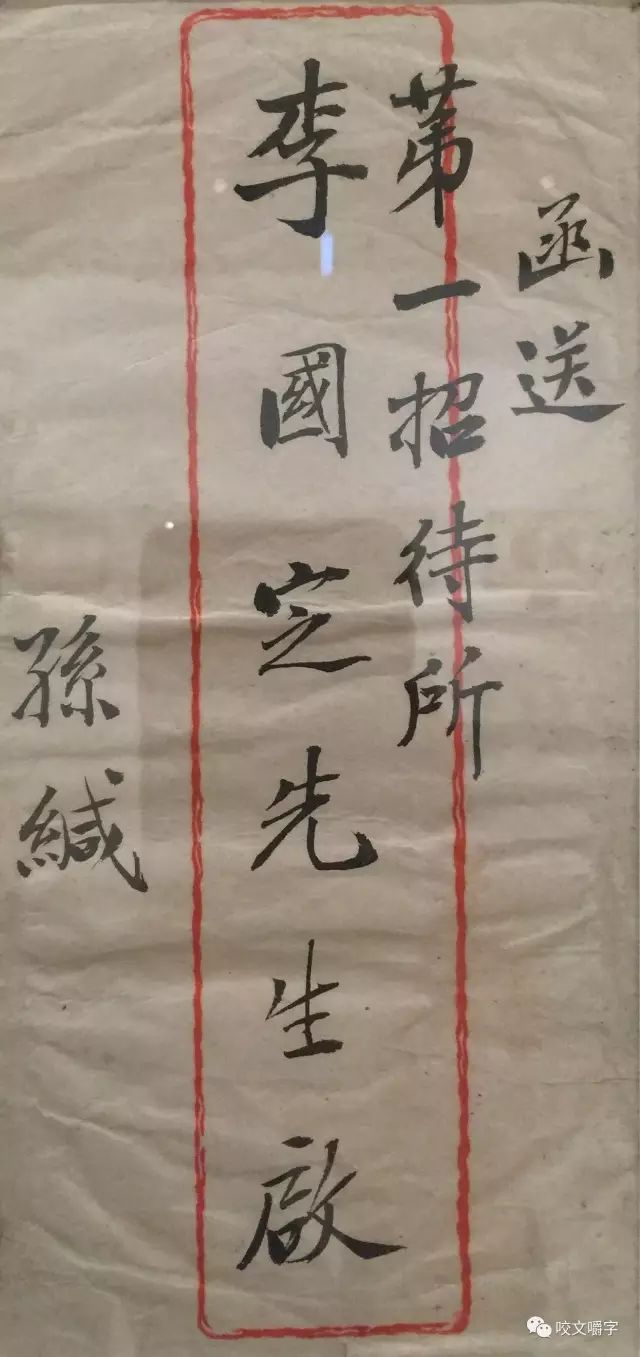 函送
苐一招待所
李國定先生啟
孫緘
咬文嚼字